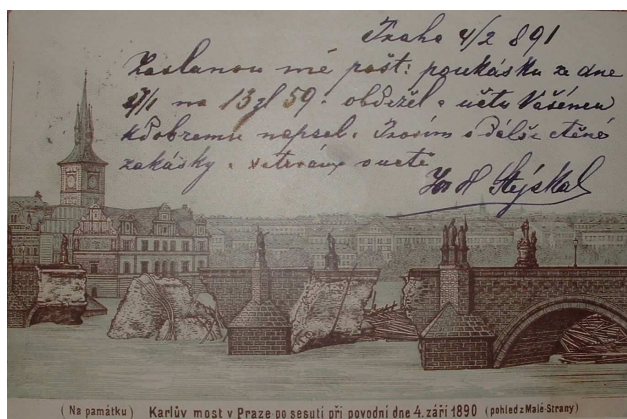 Praha 4/2 891
Zaslanou mé pošt: poukásku ze dne
27/1 na 13 zl 59. obdržel a učtu Vašemu
kdobremu napsal. Prosím o další ctěné
zakásky. v úctě
Jos. H. Stýskal
( Na památku ) Karlův most v Praze po sesutí při povodni dne 4. září 1890 (pohled z Malé Strany)